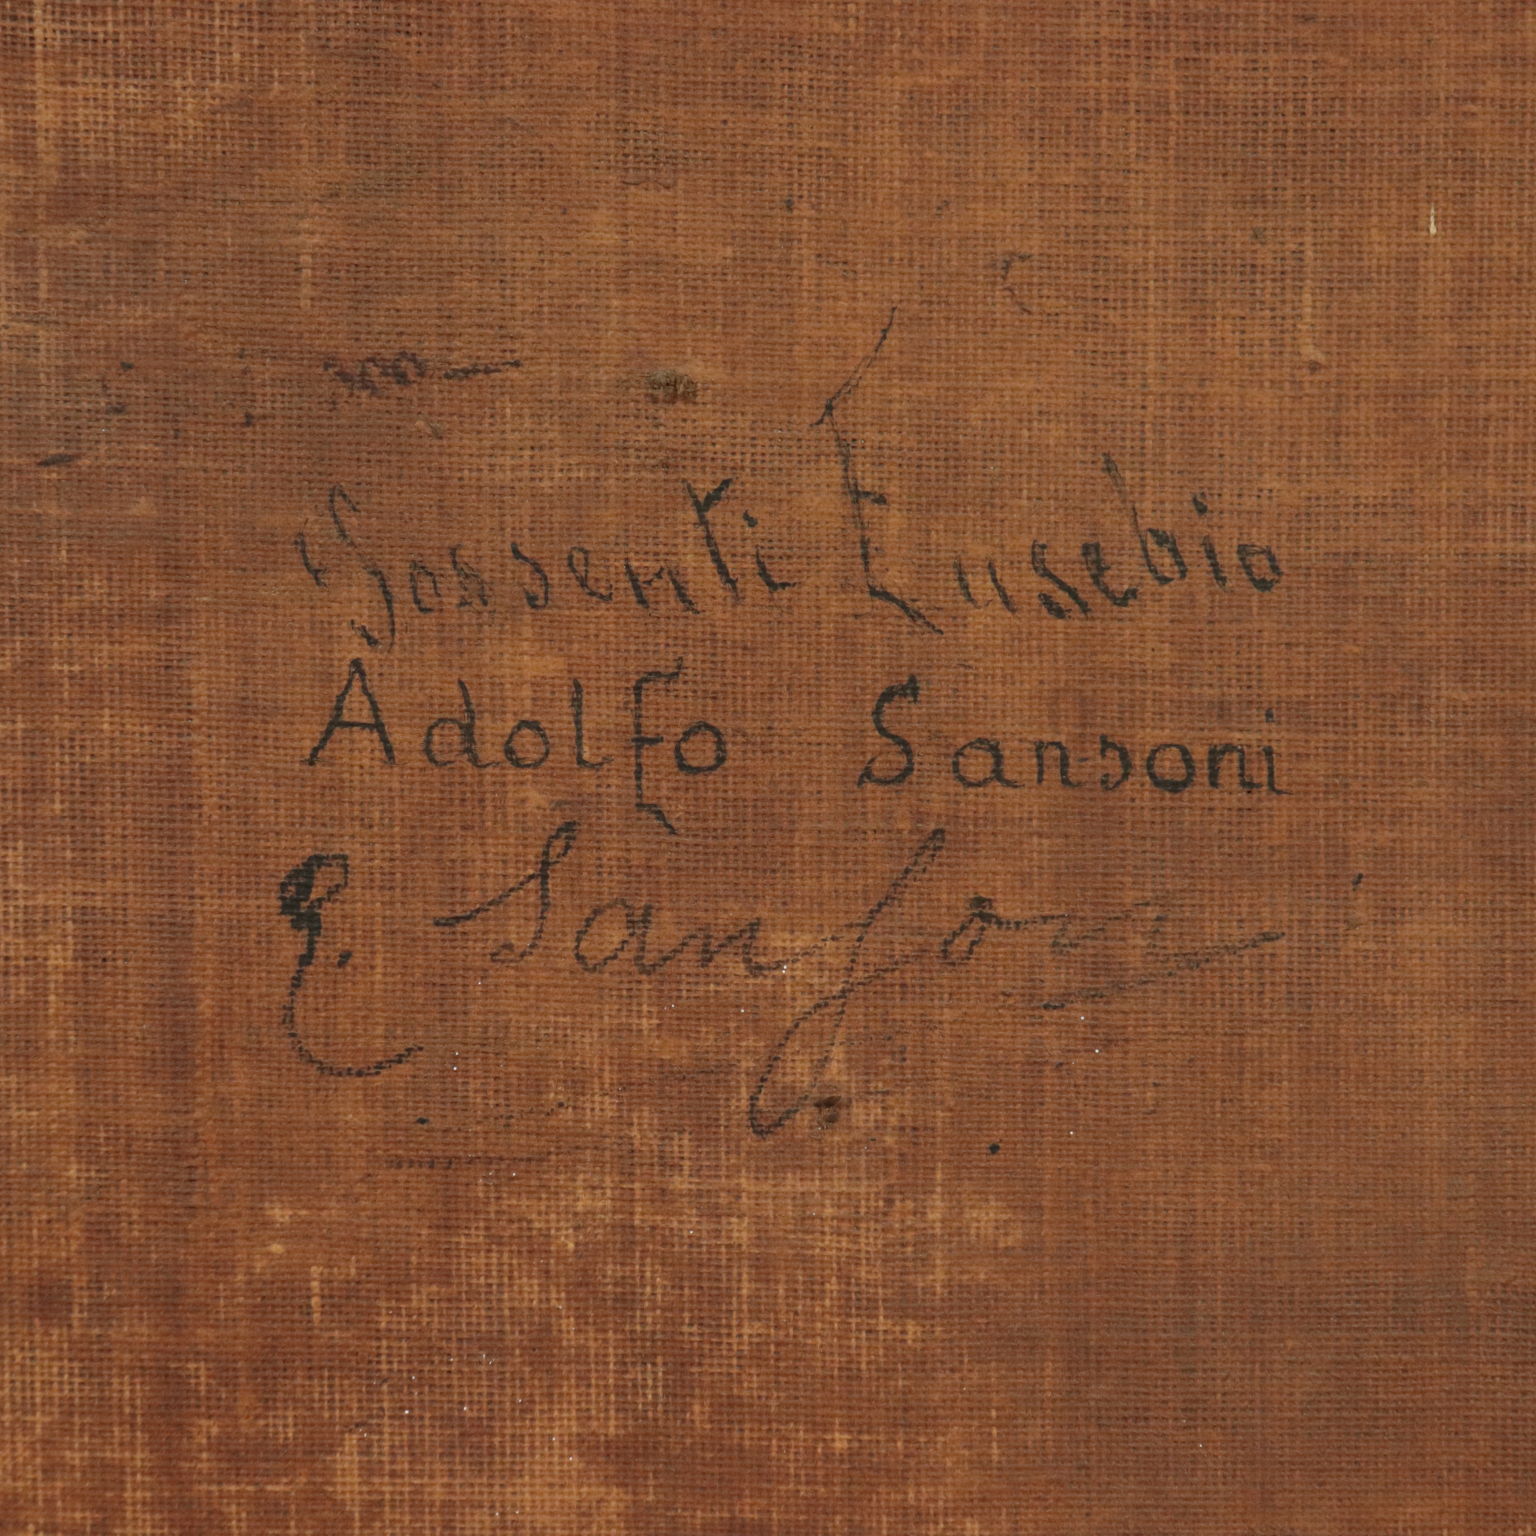 Sossenti Eusebio
Adolfo Sansoni
E. Sansoni